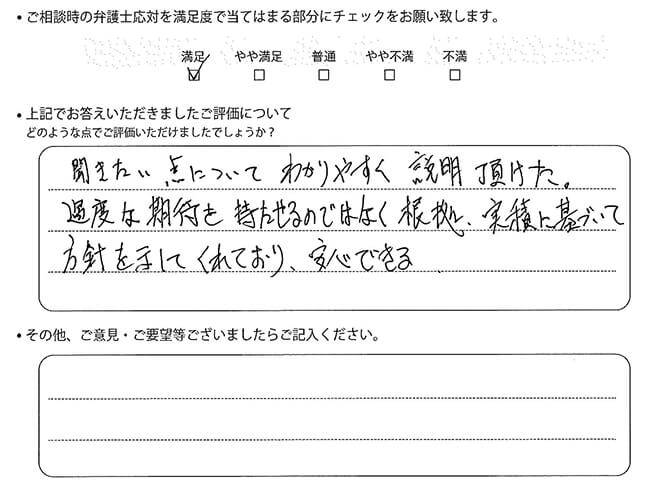 ・ご相談時の弁護士応対を満足度で当てはまる部分にチェックをお願い致します。
満足 やや満足 普通 やや不満 不満
・上記でお答えいただきましたご評価について
どのような点でご評価いただけましたでしょうか？
聞きたい点について わかりやすく 説明 頂けた。
過度な期待を持たせるのではなく根拠、実績に基づいて
方針を示してくれており、安心できる
・その他、ご意見・ご要望等ございましたらご記入ください。